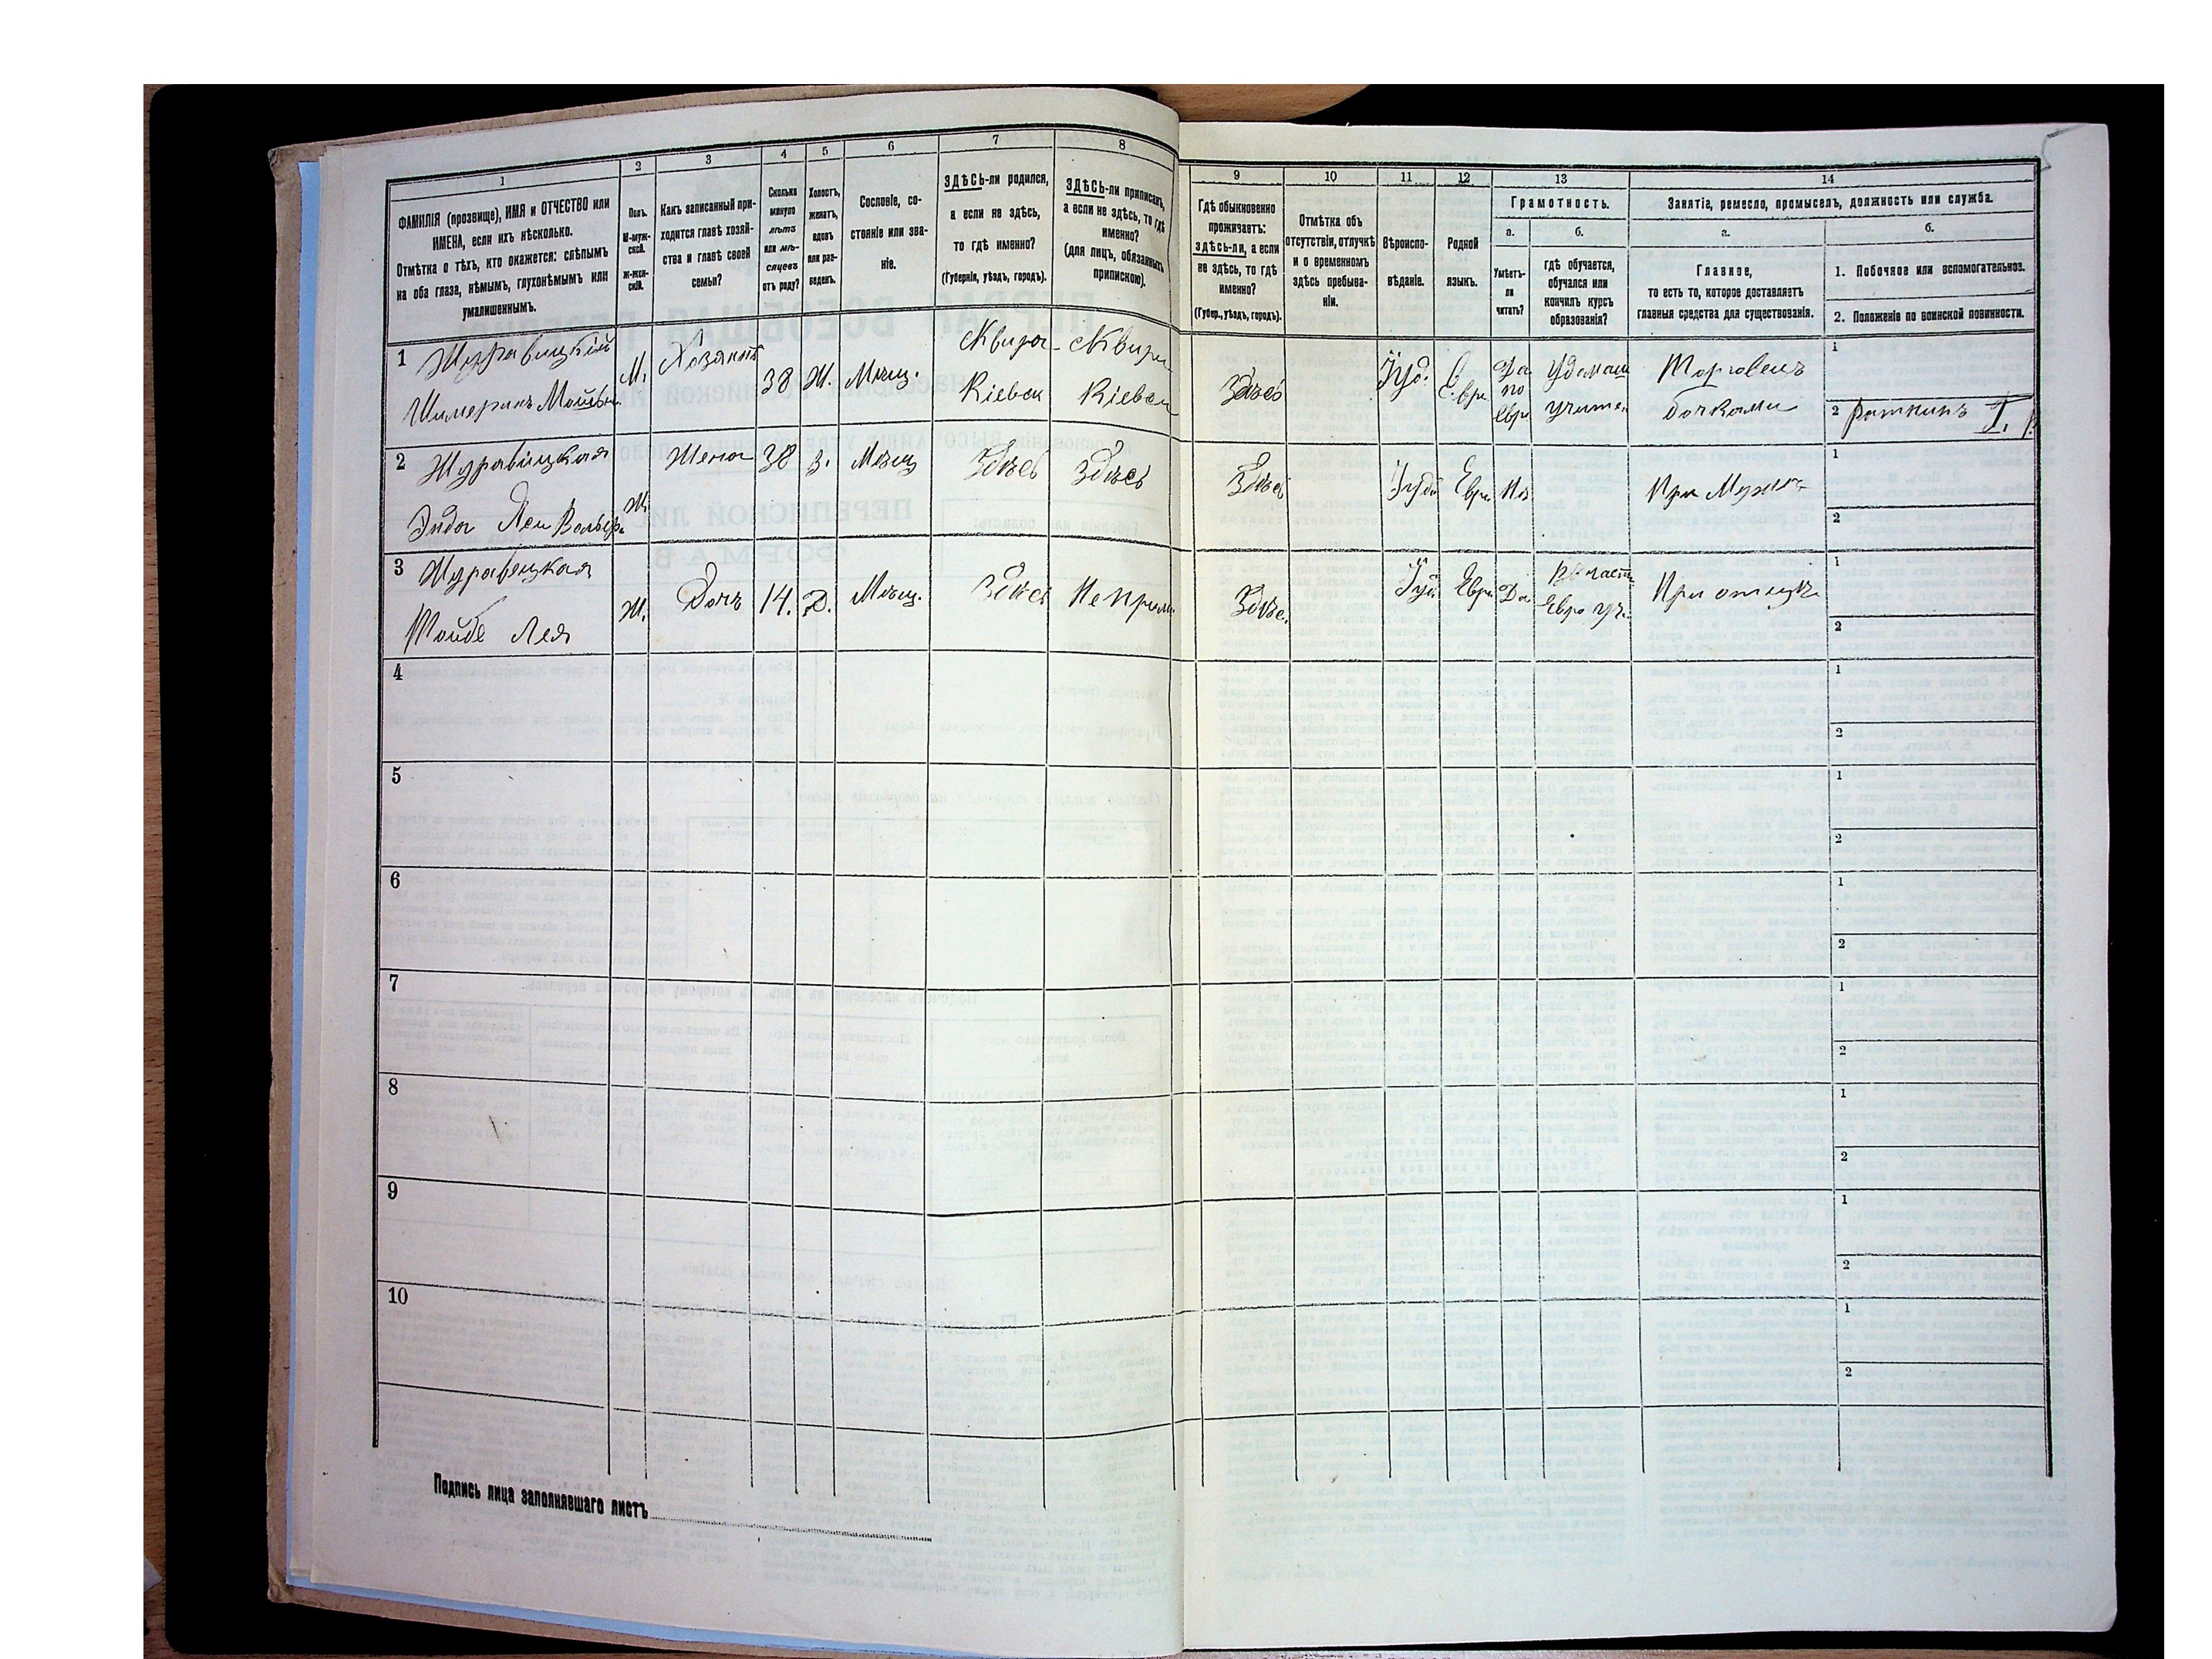 1
2
3
4
5
6
7
8
ФАМИЛІЯ (прозвище), ИМЯ и ОТЧЕСТВО или
ИМЕНА, если ихъ нѣсколько.
Отмѣтка о тѣхъ, кто окажется: слѣпымъ
на оба глаза, нѣмымъ, глухонѣмымъ или
умалишеннымъ.
Полъ.
М-муж-
ской.
Ж-жен-
скій.
Какъ записанный при-
ходится главѣ хозяй-
ства и главѣ своей
семьи?
Сколько
минуло
лѣтъ
или мѣ-
сяцевъ
отъ роду?
Холостъ,
женатъ,
вдовъ
или раз-
веденъ.
Сословіе, со-
стояніе или зва-
ніе.
ЗДѢСЬ-ли родился,
а если не здѣсь,
то гдѣ именно?
(Губернія, уѣздъ, городъ).
ЗДѢСЬ-ли приписанъ,
а если не здѣсь, то гдѣ
именно?
(для лицъ, обязанныхъ
припискою).
9
10
11
12
13
14
Гдѣ обыкновенно
проживаетъ:
здѣсь-ли, а если
не здѣсь, то гдѣ
именно?
(Губер., уѣздъ, городъ).
Отмѣтка объ
отсутствіи, отлучкѣ
и о временномъ
здѣсь пребыва-
ніи.
Вѣроиспо-
вѣданіе.
Родной
языкъ.
Грамотность.
а.
б.
Умѣетъ-
ли
читать?
гдѣ обучается,
обучался или
кончилъ курсъ
образованія?
Занятіе, ремесло, промыселъ, должность или служба.
а.
б.
Главное,
то есть то, которое доставляетъ
главныя средства для существованія.
1. Побочное или вспомогательное.
2. Положеніе по воинской повинности.
1 Журавицкій
М. Хозяинъ 38 Ж. Мѣщ. Сквира Сквира
Кіевск Кіевск
Здѣсь Іуд. Евр. Да по Евр. Торговецъ
бочками
1
2
2 Журавицкая
Ж. Жена 38 З. Мѣщ Здѣсь Здѣсь
Здѣсь Іуд Евр При Мужѣ
1
2
3 Журавецкая
Тойбе Лея
Ж. Дочь 14. Д. Мѣщ. Здѣсь
Здѣсь Іуд Евр Да При отцѣ
1
2
4
1
2
5
1
2
6
1
2
7
1
2
8
1
2
9
1
2
10
1
2
Подпись лица заполнявшаго листъ